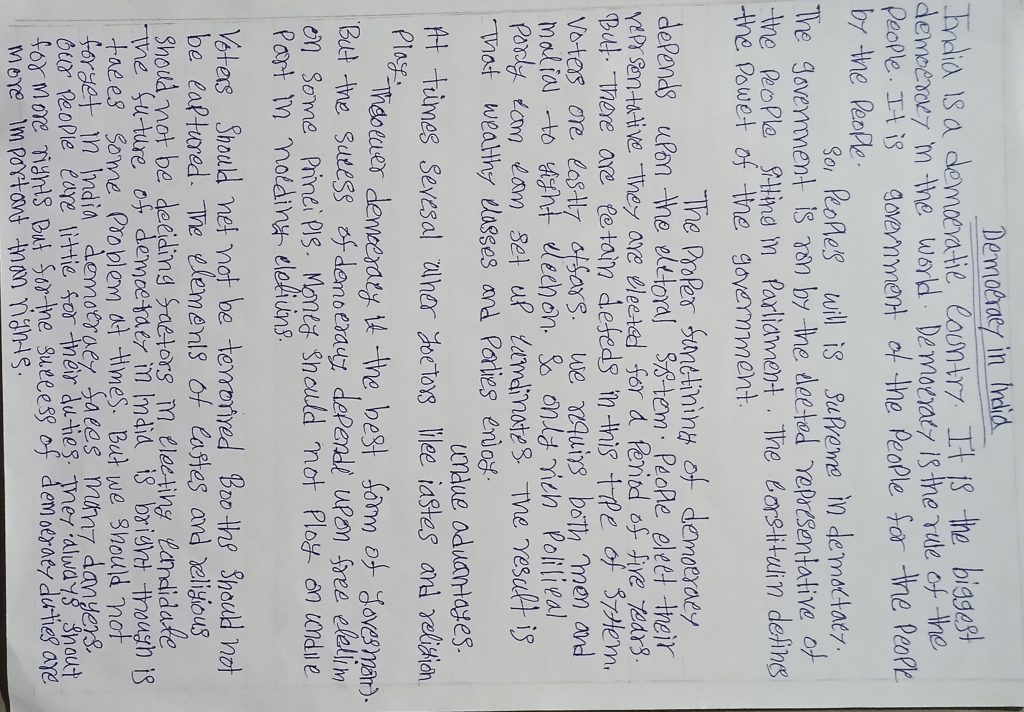 Democracy in India
India is a democratic Country. It is the biggest
democracy in the word. Democracy is the rule of the
People. It is government of the People for the People
by the People.
So, Peoples will is supreme in democracy.
The government is ron by the elected representative of
the people sitting in Parliament. The constituin defines
the Power of the government.
The Proper functining of democracy
depends upon the eletoral System. People elect their
representative they are elected for a Period of five years.
But. There are certain defects in this type of System.
Voters are easily offsars. we requirs both men and
matial to fight election. So only rich Political
Party can can set up candinates. The result is
That wealthy classes and Parties enjoy
undue advantages.
At times several other foctors like castes and religion
Play.
However democracy it the best form of
But the sucess of democracy depend upon free
on some Principls. Money should not Play on undie
Part in holding
Voters Should net not be terrorired Booths Should not
be captured. The elements of castes and religious
should not be deciding factors in electing candidate
The future of democracy in India is bright though is
faces some Problem at times. But we should not
forget in India democracy faces many dangers.
Our people care little for their duties. They always shout
for more rights but for the success of democracy duties are
more important than rights.